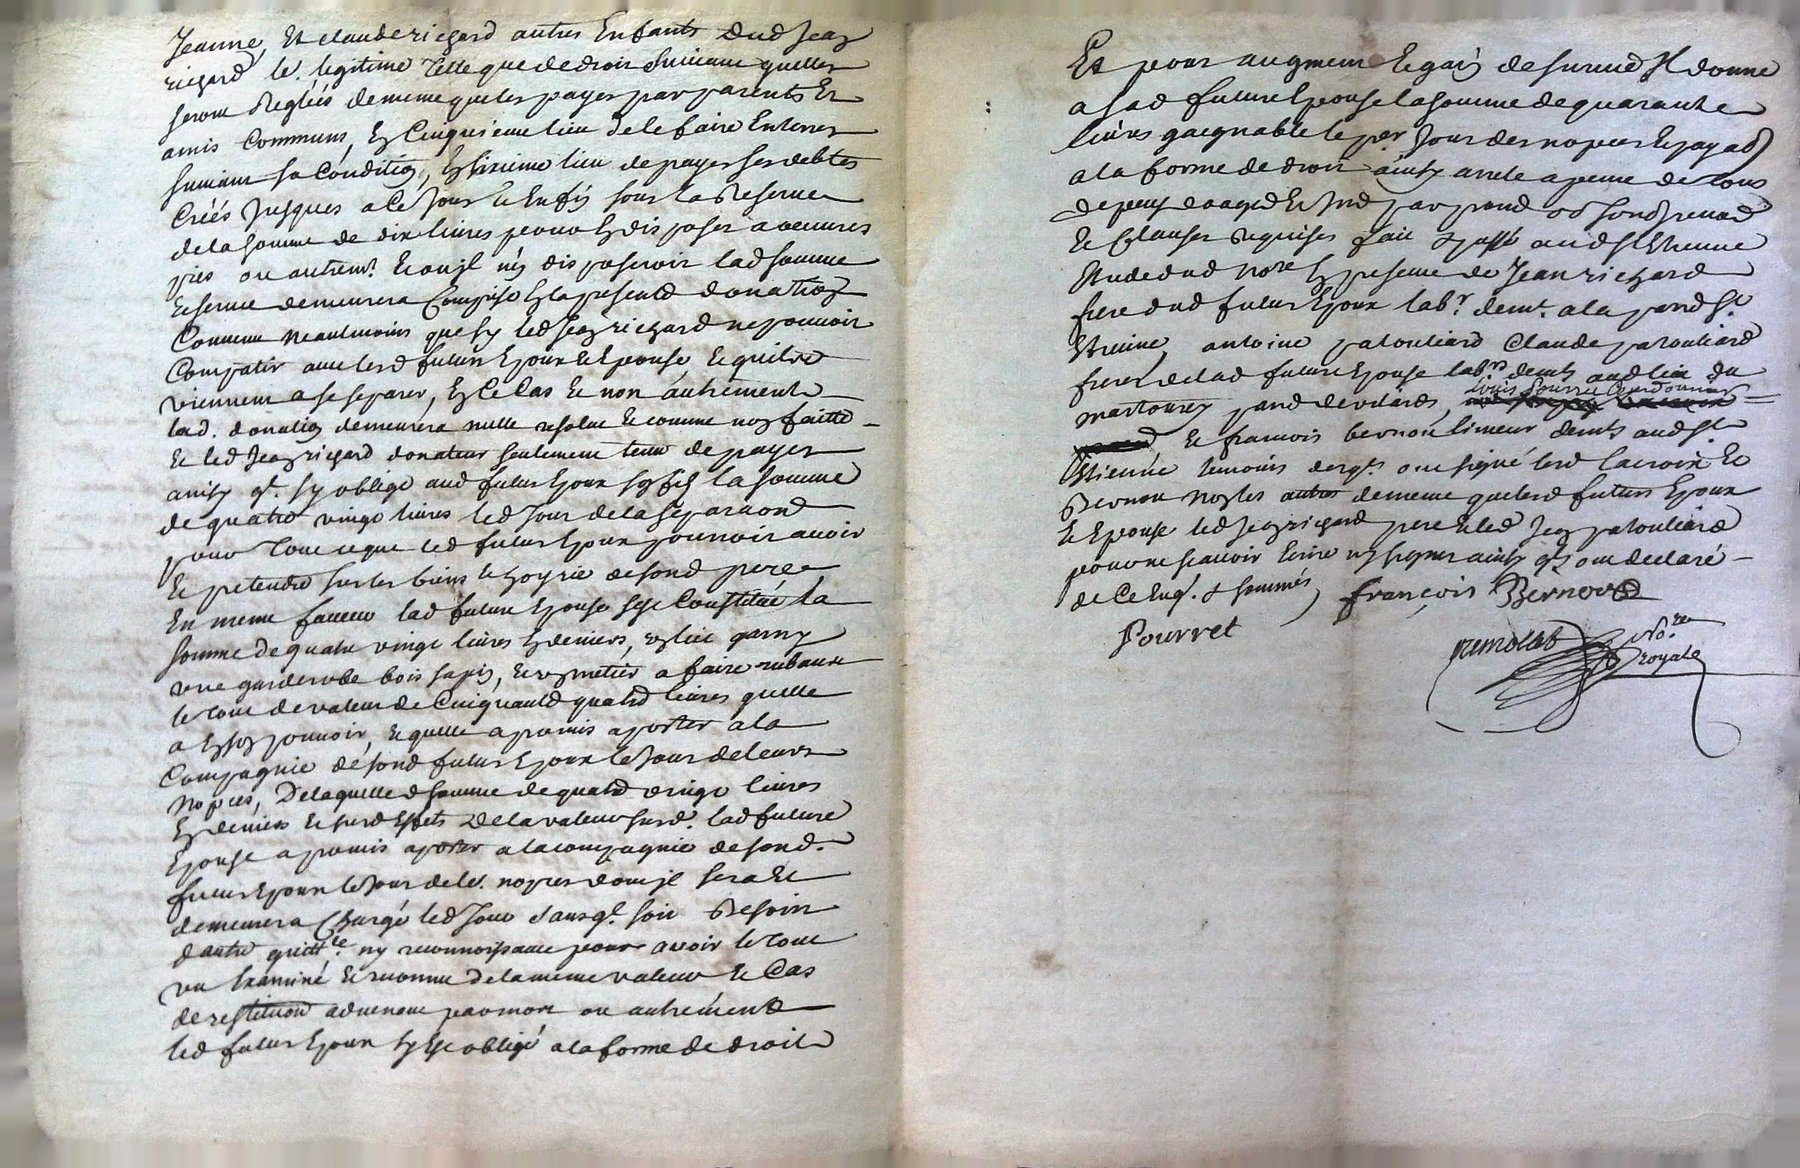 Jeanne, et claude richard autres Enfants dud Jean
richard le. legitime telle que de droit suivant quelles
seront Reglées de meme que les payes par parents Et
amis Communs, En Cinquieme lieu de le faire Enterrer
suivant sa Condition, En sixieme lieu de payer ses debtes
Créés Jusques a Ce Jour Et Enfin sous la Reserve
de la somme de dix livres pour En disposer a oeuvres
pies ou autremt. Et ou jl n'en disposeroit lad somme
Reservée demeurera Comprise En la presente donation
Convenu neantmoins que sy led Jean richard ne pouvoit
Compatir avec lesd futurs Epoux Et Epouse, Et quils
viennent a se separer, En Ce Cas Et non autrement
lad. donation demeurera nulle resolue Et comme non faitte
Et led Jean richard donateur seulement tenu de payer
ainsy qt. sy oblige aud futur Epoux son fils la somme
de quatre vingt livres led Jour de la separaond
pour tout ce que led futur Epoux pourroit avoir
Et pretendre sur les biens Et hoyrie de sond pere
En meme faveur lad future Epouse sest Constituée la
somme de quatre vingt livres En deniers, un lict garny
une garderobe bois sapin, Et un metier a faire rubans
le tout de valeur de Cinquante quatre livres quelle
a En son pouvoir, Et quelle a promis aporter a la
Compagnie de sond futur Epoux le Jour de leurs
Nopces, De laquelle somme de quatre vingt livres
En deniers Et susd Effets De la valeur susd. lad future
Epouse a promis aporter a la compagnie de sond.
futur Epoux le Jour de le. nopces dont jl sera Et
demeurera Chargé led Jour sans qt. soit Besoin
d'autre quittce. ny reconnoissance pour avoir le tout
vu Examiné Et reconnu De la meme valeur Et Cas
de restitution advenant par mort ou autrement
led futur Epoux sy Est obligé a la forme de droit
Et pour augment Et gain de survie Jl donne
a sad future Epouse la somme de quarante
livres gaignable le per Jour des nopces Et payab
a la forme de droit ainsy arreté a peine de tous
depens domages Et Int par prom
Et Clauses Requises fait Et passé aud St Etienne
Etude dud Nore En presence de Jean richard
frere dud futur Epoux labr. demt. a la parr St.
Etienne, antoine patouliard Claude patouliard
freres de lad future Epouse labrs demts aud lieu du
martouret parr de villards, louis Pourret Cordonnier
Et francois bernou limeur demts aud St.
Etienne temoins desqls ont signé lesd lacroix Et
Bernou Non les autres de meme que lesd futurs Epoux
Et Epouse led Jean richard pere Et led Jean patouliard
pour ne scavoir Ecrire ny signer ainsy qls ont declaré
de Ce Enqs. & sommés
françois Bernoud
Pourret
No.re
royale